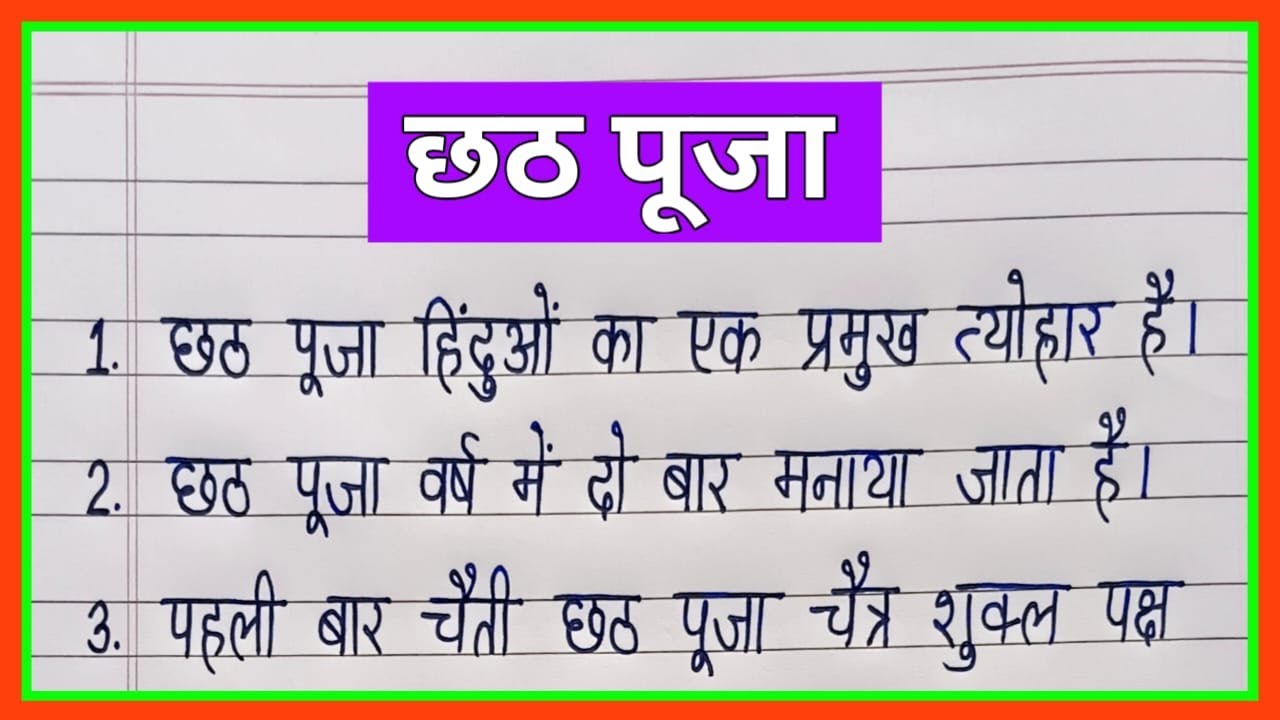 छठ पूजा
1. छठ पूजा हिंदुओं का एक प्रमुख त्योहार है।
2. छठ पूजा वर्ष में दो बार मनाया जाता है।
3. पहली बार चैती छठ पूजा चैत्र शुक्ल पक्ष